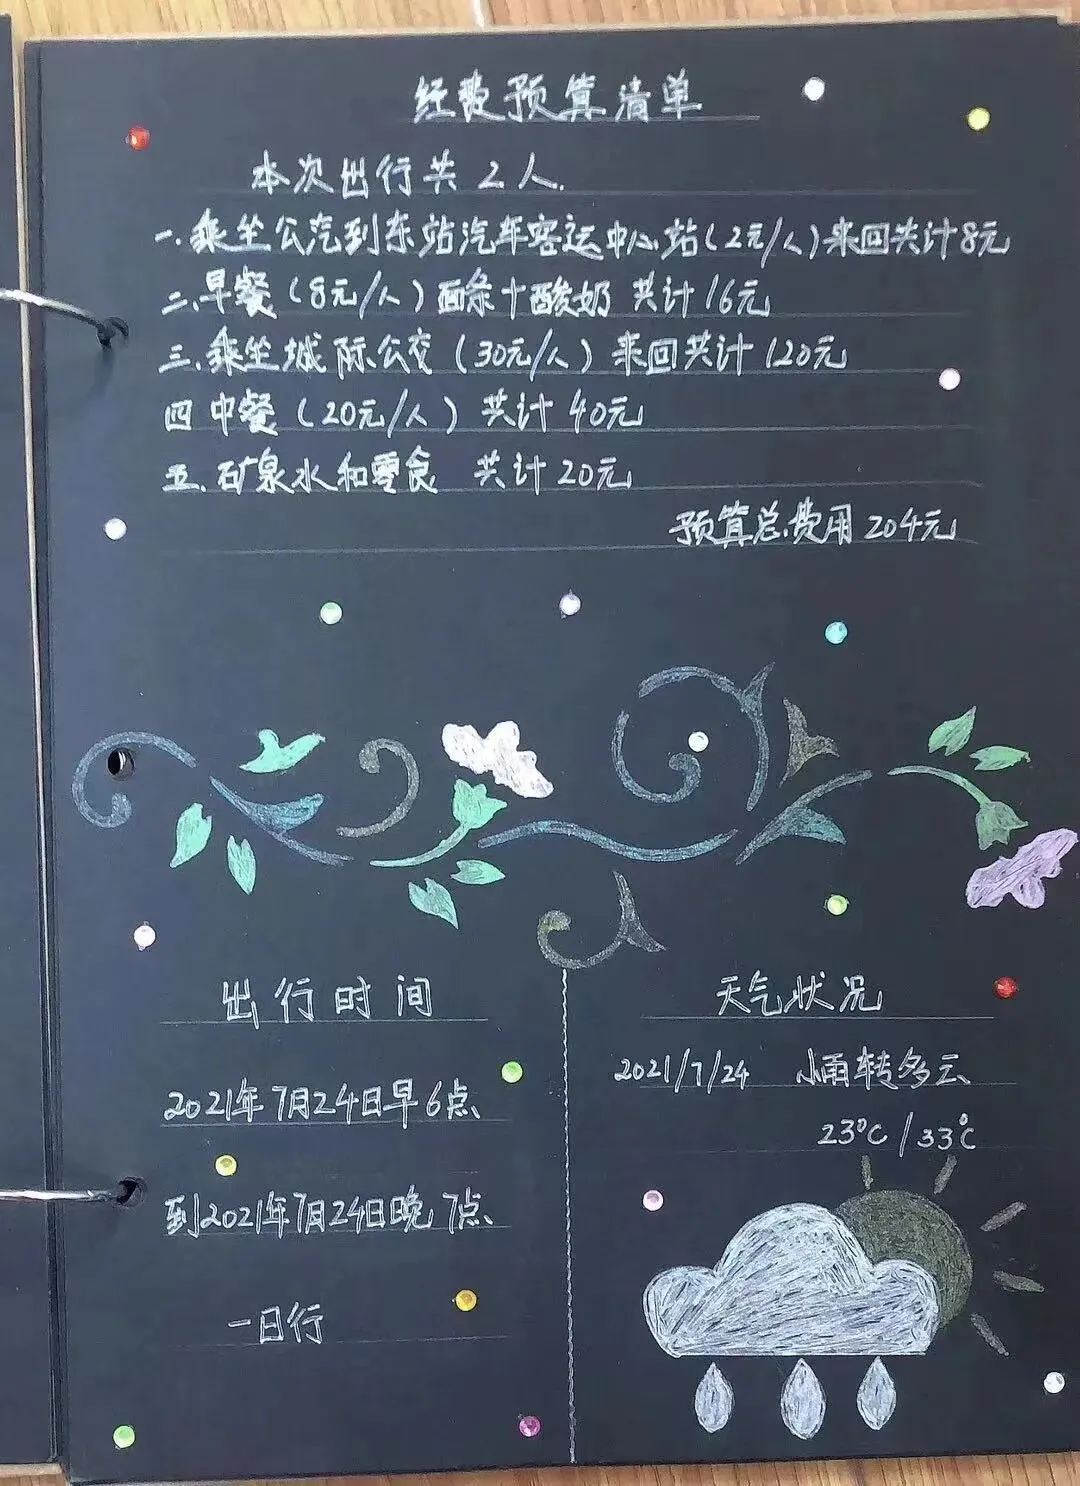 经费预算清单
本次出行共2人.
一.乘坐公汽到东站汽车客运中心站(2元/人)来回共计8元
二.早餐(8元/人)面条十酸奶 共计16元
三.乘坐城际公交(30元/人)来回共计120元
四 中餐(20元/人)共计40元
五.矿泉水和零食 共计20元
预算总费用204元
出行时间
2021年7月24日早6点
到2021年7月24日晚7点
一日行
天气状况
2021/7/24 小雨转多云
23°C/33°C